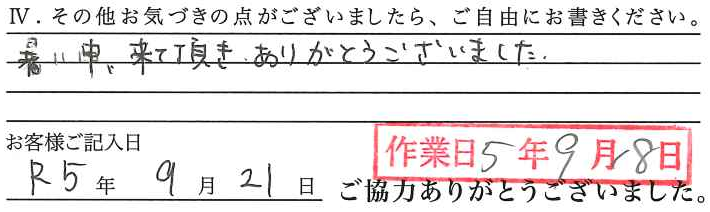 Ⅳ．その他お気づきの点がございましたら、ご自由にお書きください。
暑い中、来て頂き、ありがとうございました。
お客様ご記入日
作業日5年9月8日
R5年 9月21日 ご協力ありがとうございました。